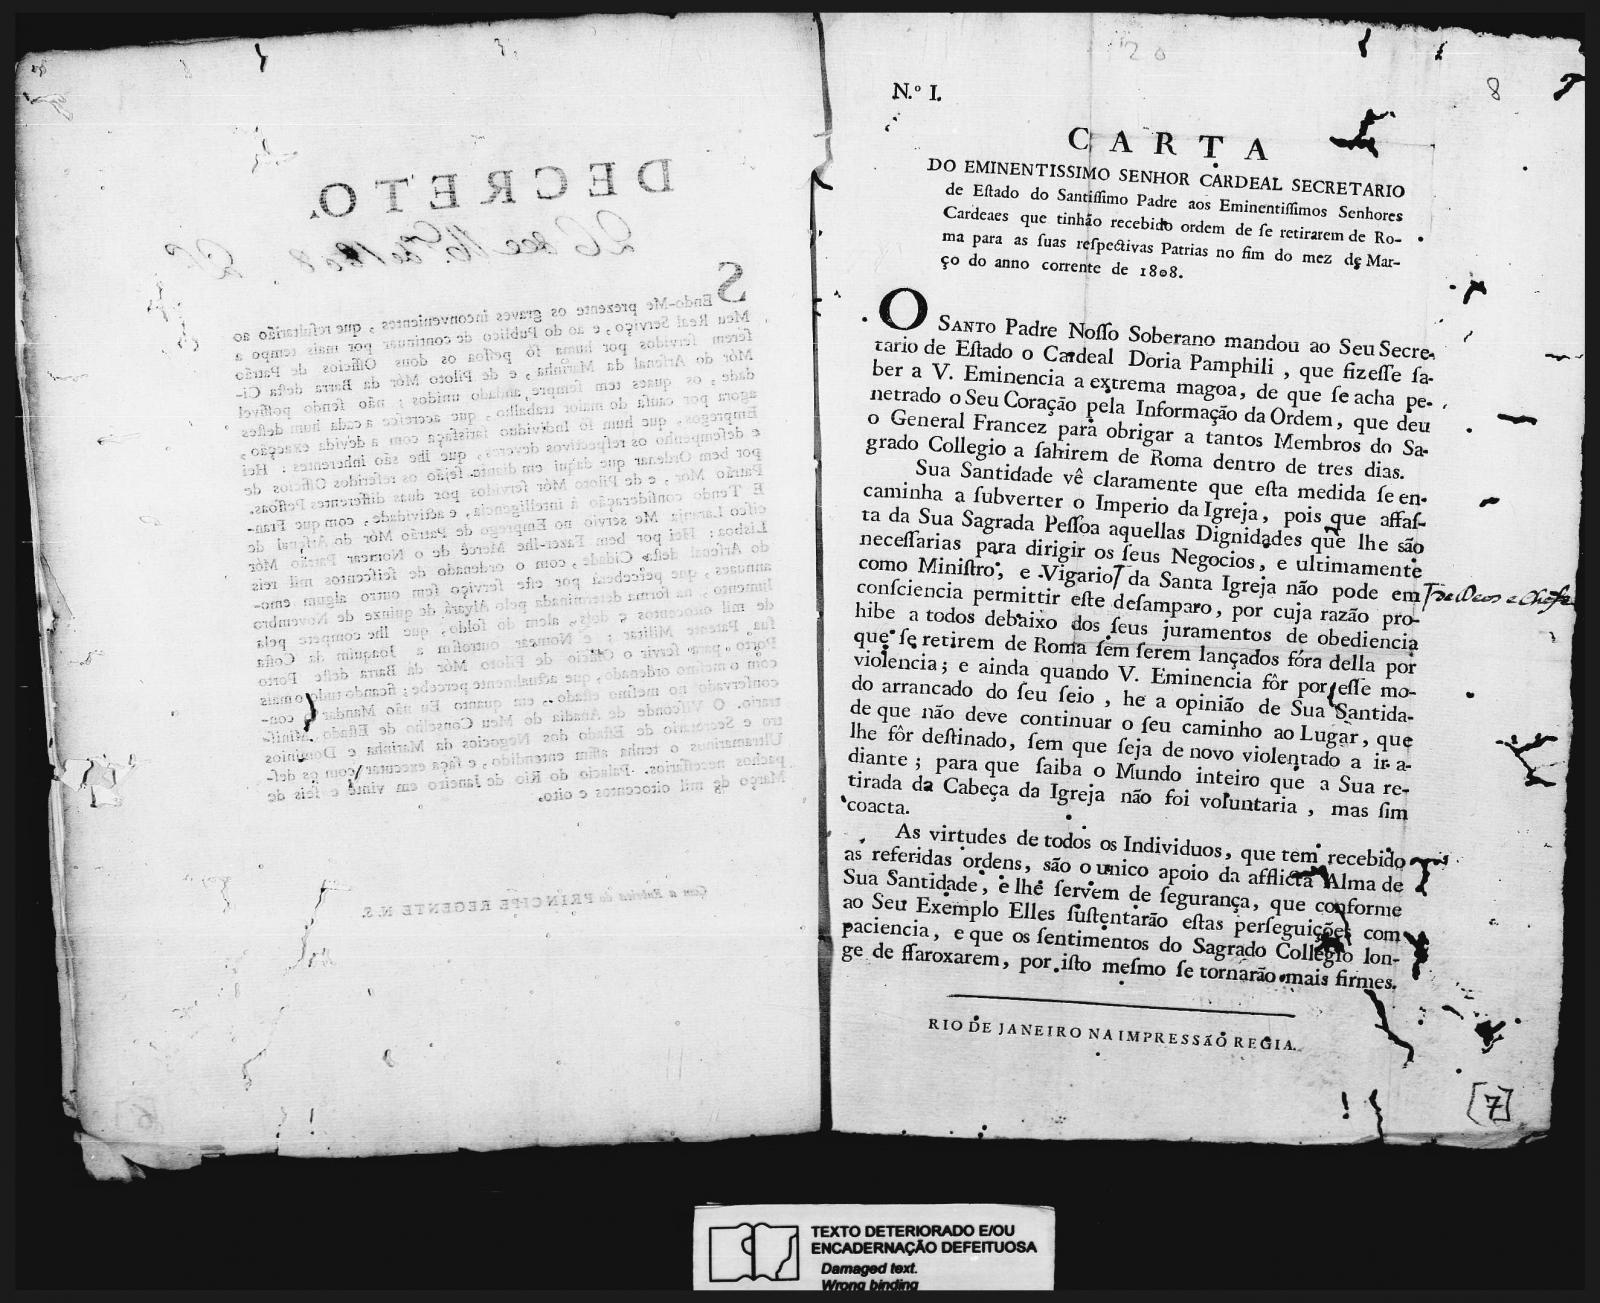 DECRETO.
SEndo-Me prezente os graves inconvenientes, que resultarião ao
Meu Real Serviço, e ao do Publico de continuar por mais tempo a
ſerem ſervidos por huma ſó peſſoa os dous Officios de Patrão
Mór do Arſenal da Marinha, e de Piloto Mór da Barra deſta Ci-
dade, os quaes tem ſempre andado unidos; não ſendo poſſivel
agora por cauſa do maior trabalho, que accreſce a cada hum deſtes
Empregos, que hum ſó Individuo ſatisfaça com a devida exacção,
e deſempenho os reſpectivos deveres, que lhe são inherentes: Hei
por bem Ordenar que daqui em diante ſejão os referidos Officios de
Patrão Mór, e de Piloto Mór ſervidos por duas differentes Peſſoas.
E Tendo conſideração á intelligencia, e actividade, com que Fran-
ciſco Laranja Me ſervio no Emprego de Patrão Mór do Arſenal de
Lisboa: Hei por bem Fazer-lhe Mercê de o Nomear Patrão Mór
do Arſenal deſta Cidade, com o ordenado de ſeiſcentos mil reis
annuaes, que perceberá por eſte ſerviço ſem outro algum emo-
lumento, na forma determinada pelo Alvará de quinze de Novembro
de mil oitocentos e dois, alem do ſoldo, que lhe compete pela
ſua Patente Militar; e Nomear outroſim a Joaquim da Coſta
Porto para ſervir o Officio de Piloto Mór da Barra deſte Porto
com o meſmo ordenado, que actualmente percebe; ficando tudo o mais
conſervado no meſmo eſtado, em quanto Eu não Mandar o con-
trario. O Viſconde de Anadia do Meu Conſelho de Eſtado, Miniſ-
tro e Secretario de Eſtado dos Negocios da Marinha e Dominios
Ultramarinos o tenha aſſim entendido, e faça executar com os deſ-
pachos neceſſarios. Palacio do Rio de Janeiro em vinte e ſeis de
Março de mil oitocentos e oito.
Com a Rubrica do PRINCIPE REGENTE N. S.
[6]
20
8
N.º I.
CARTA
DO EMINENTISSIMO SENHOR CARDEAL SECRETARIO
de Eſtado do Santiſſimo Padre aos Eminentiſſimos Senhores
Cardeaes que tinhão recebido ordem de ſe retirarem de Ro-
ma para as ſuas reſpectivas Patrias no fim do mez de Mar-
ço do anno corrente de 1808.
O SANTO Padre Noſſo Soberano mandou ao Seu Secre-
tario de Eſtado o Cardeal Doria Pamphili, que fizeſſe ſa-
ber a V. Eminencia a extrema magoa, de que ſe acha pe-
netrado o Seu Coração pela Informação da Ordem, que deu
o General Francez para obrigar a tantos Membros do Sa-
grado Collegio a ſahirem de Roma dentro de tres dias.
Sua Santidade vê claramente que eſta medida ſe en-
caminha a ſubverter o Imperio da Igreja, pois que affaſ-
ta da Sua Sagrada Peſſoa aquellas Dignidades que lhe são
neceſſarias para dirigir os ſeus Negocios, e ultimamente
como Miniſtro, e Vigario da Santa Igreja não pode em
de Deos e Chefe
conſciencia permittir eſte deſamparo, por cuja razão pro-
hibe a todos debaixo dos ſeus juramentos de obediencia
que ſe retirem de Roma ſem ſerem lançados fóra della por
violencia; e ainda quando V. Eminencia fôr por eſſe mo-
do arrancado do ſeu ſeio, he a opinião de Sua Santida-
de que não deve continuar o ſeu caminho ao Lugar, que
lhe fôr deſtinado, ſem que ſeja de novo violentado a ir a-
diante; para que ſaiba o Mundo inteiro que a Sua re-
tirada da Cabeça da Igreja não foi voluntaria, mas ſim
coacta.
As virtudes de todos os Individuos, que tem recebido
as referidas ordens, são o unico apoio da afflicta Alma de
Sua Santidade, e lhe ſervem de ſegurança, que conforme
ao Seu Exemplo Elles ſuſtentarão eſtas perſeguições com
paciencia, e que os ſentimentos do Sagrado Collegio lon-
ge de ffaroxarem, por iſto meſmo ſe tornarão mais firmes.
RIO DE JANEIRO NA IMPRESSÃO REGIA.
[7]
TEXTO DETERIORADO E/OU
ENCADERNAÇÃO DEFEITUOSA
Damaged text.
Wrong binding